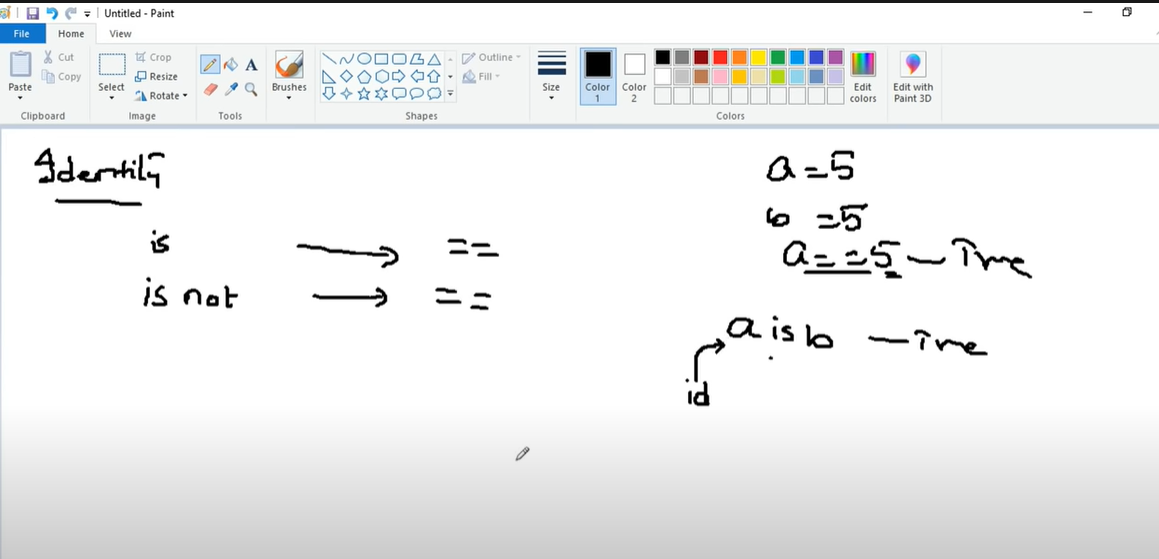 Untitled - Paint
File Home View
Paste Cut Copy Clipboard
Select Crop Resize Rotate Image
A Tools
Brushes
Shapes Outline Fill
Size
Color 1 Color 2 Colors
Edit colors
Edit with Paint 3D
Identity
is → ==
is not → ==
a=5
b =5
a==5 — True
a is b — True
id